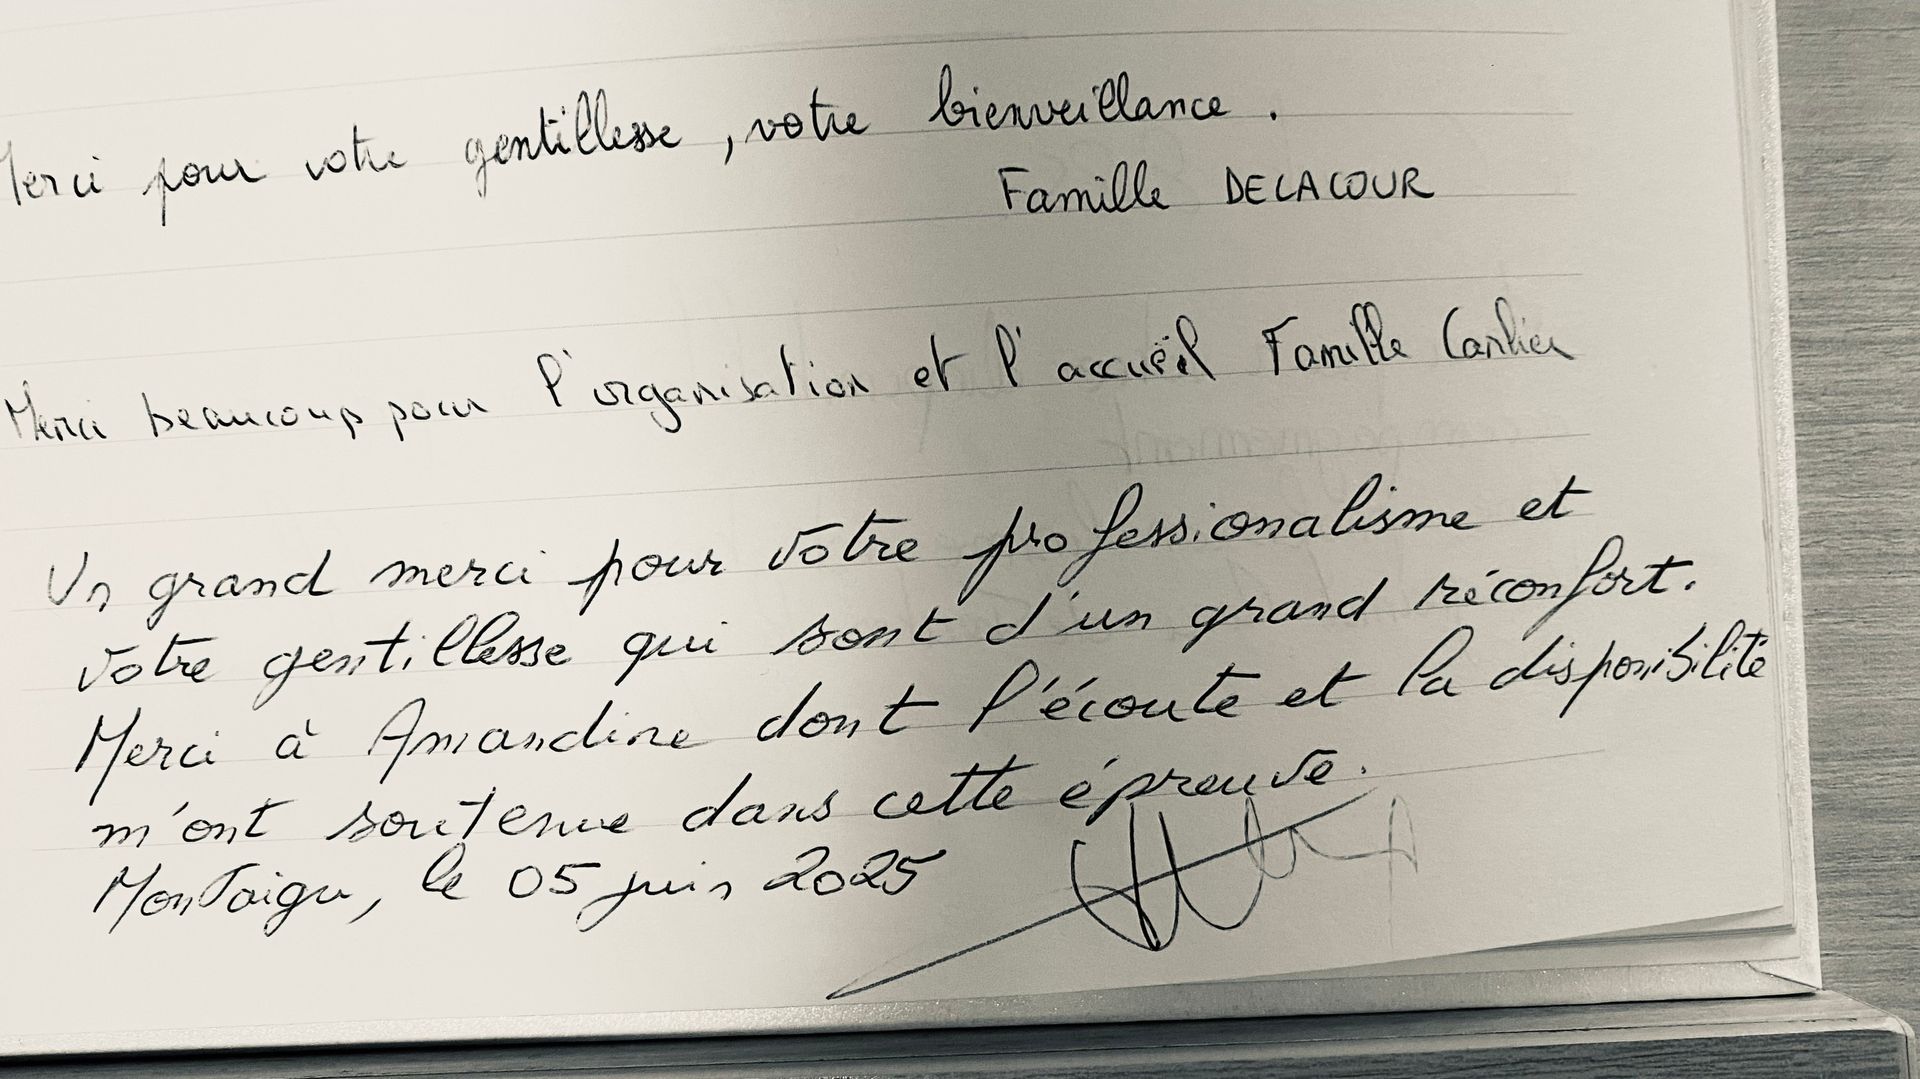 Merci pour votre gentillesse, votre bienveillance.
Famille DELACOUR
Merci beaucoup pour l'organisation et l'accueil Famille Carlier
Un grand merci pour votre professionalisme et
votre gentillesse qui sont d'un grand réconfort.
Merci à Amandine dont l'écoute et la disponibilité
m'ont soutenue dans cette épreuve.
Montaigu, le 05 juin 2025